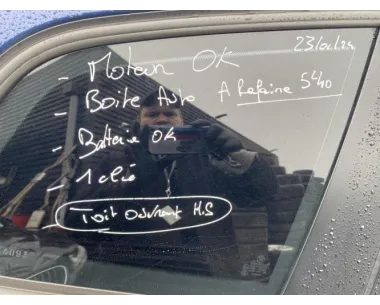 23/01/24
- Moteur OK
- Boite Auto A Refaire 5h40
- Batterie OK
- 1 clé
- Toit ouvrant H.S